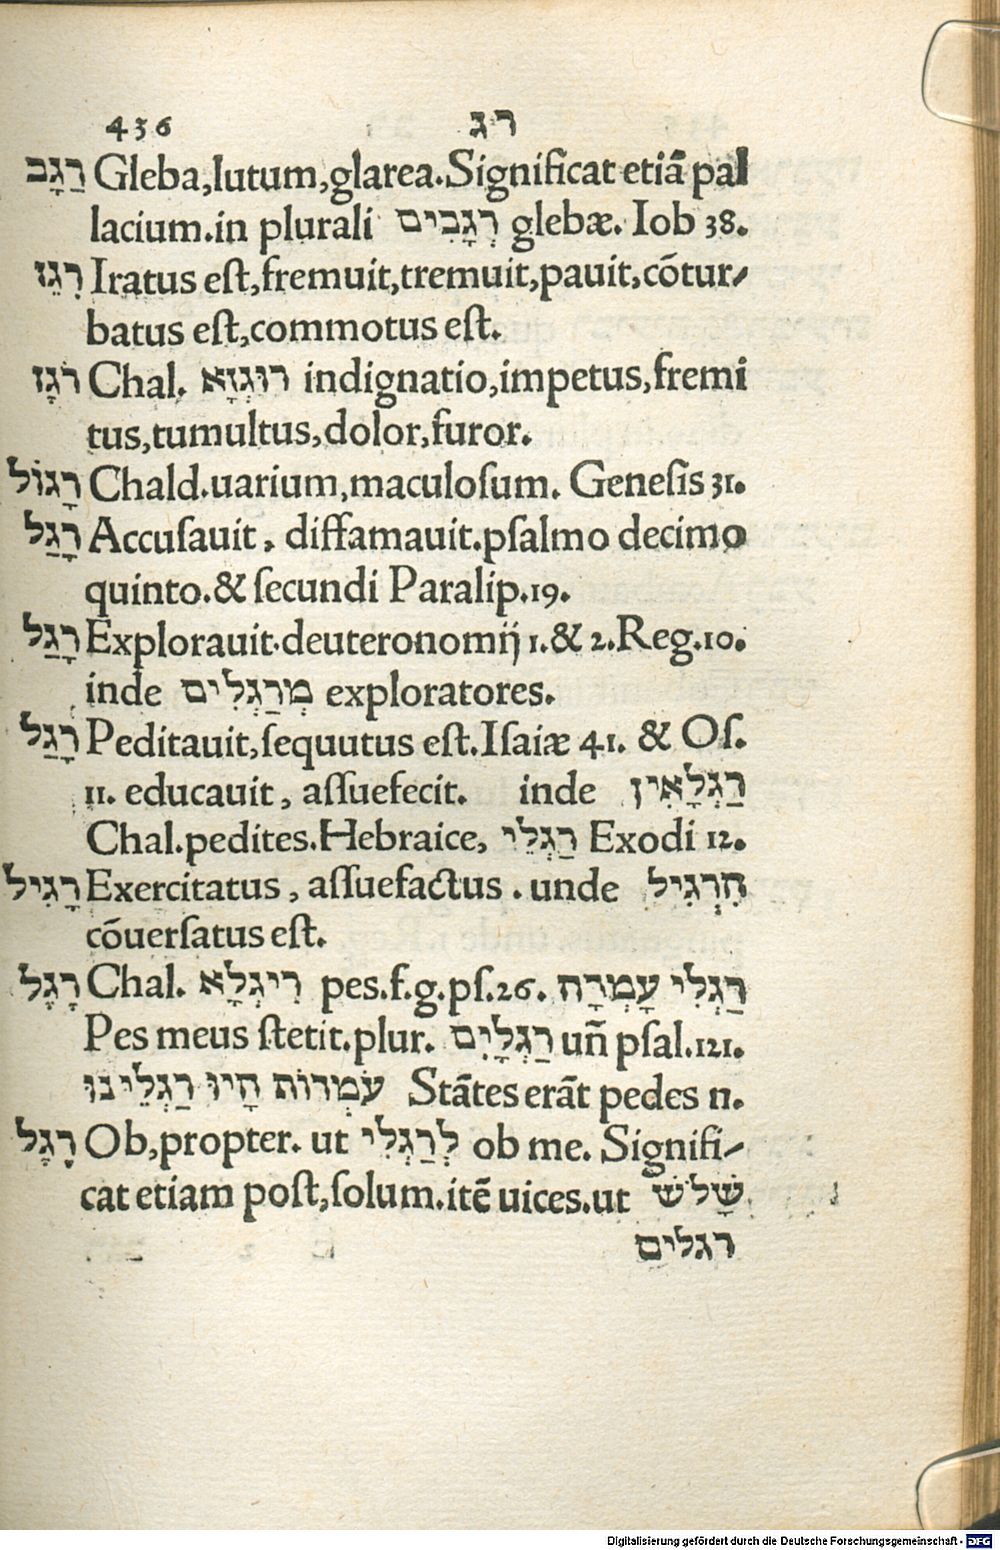 436 רג
רַגָב Gleba,lutum,glarea.Significat etiã pal
lacium.in plurali רְגָבִים glebæ. Iob 38.
רִגֵז Iratus eſt,fremuit,tremuit,pauit,cõtur-
batus eſt,commotus eſt.
רֹגֶז Chal. רוּגְזָא indignatio,impetus,fremi
tus,tumultus,dolor,furor.
רָגוֹל Chald.uarium,maculoſum. Geneſis 31.
רָגַל Accuſauit, diffamauit.pſalmo decimo
quinto.& ſecundi Paralip.19.
רָגַל Explorauit.deuteronomij 1.& 2.Reg.10.
inde מְרַגְלִים exploratores.
רָגַל Peditauit,ſequutus eſt.Iſaiæ 41. & Oſ.
11. educauit, aſſuefecit. inde רַגְלָאִין
Chal.pedites.Hebraice, רַגְלֵי Exodi 12.
רָגִיל Exercitatus, aſſuefactus. unde הִרְגִיל
cõuerſatus eſt.
רֶגֶל Chal. רִיגְלָא pes.f.g.pſ.26. רַגְלִי עָמְדָה
Pes meus ſtetit.plur. רַגְלַָיִם uñ pſal.121.
עֹמְדוֹת הָיוּ רַגְלֵינוּ Stãtes erãt pedes n.
רֶגֶל Ob,propter. ut לְרַגְלִי ob me. Signifi-
cat etiam poſt,ſolum.itẽ uices.ut שָׁלֹשׁ
רגלים
Digitalisierung gefördert durch die Deutsche Forschungsgemeinschaft - DFG